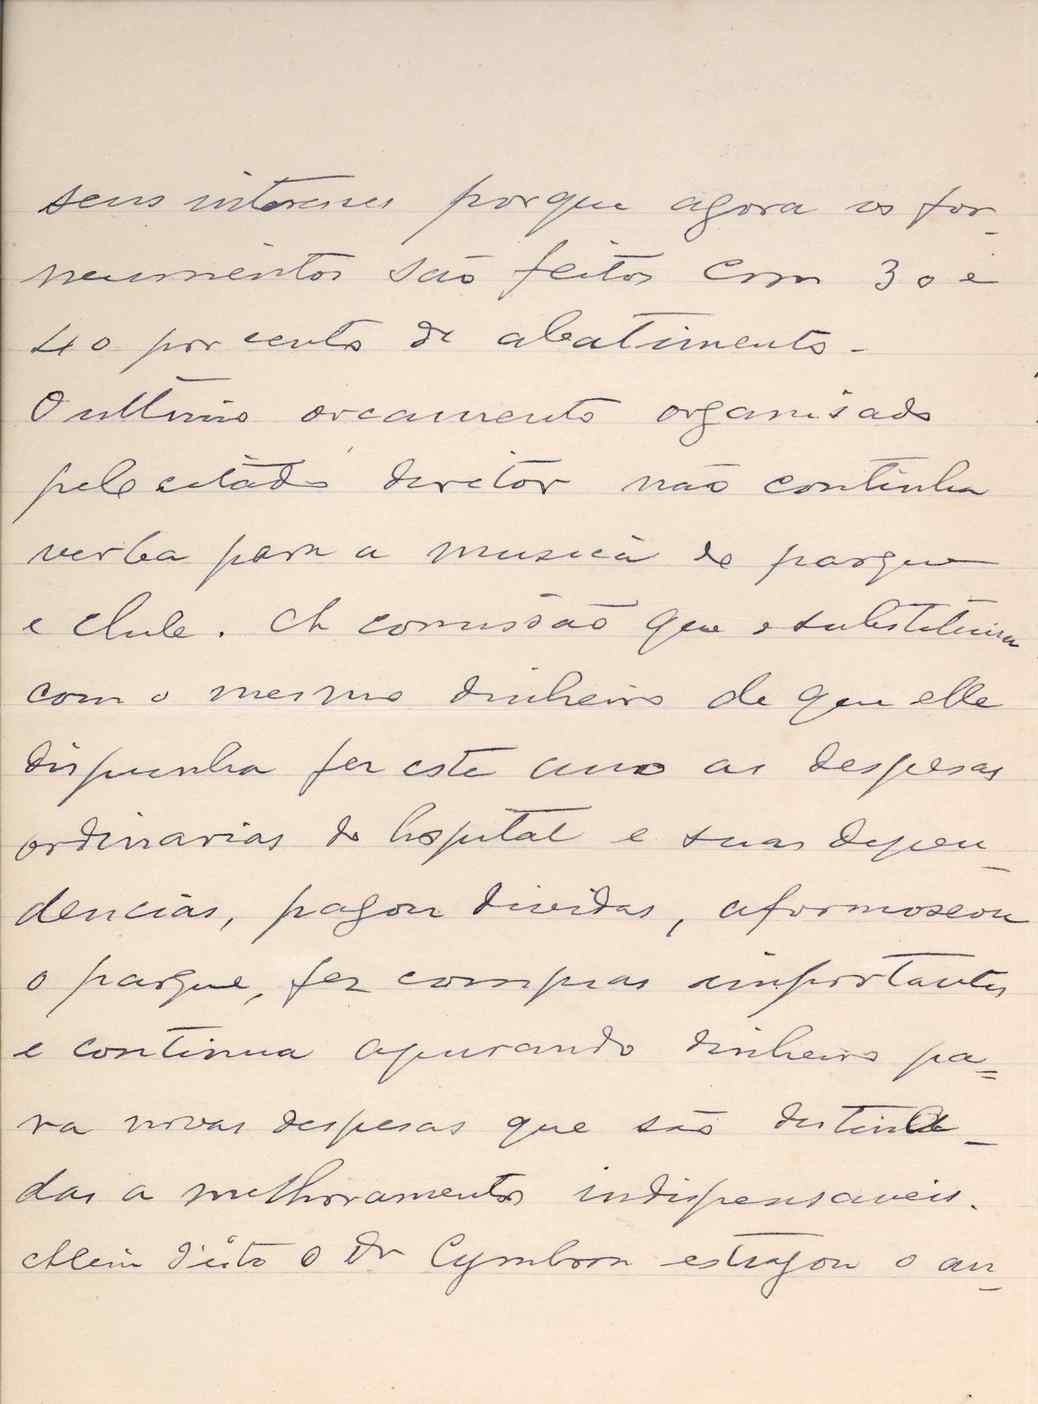 seus interesses porque agora os for-
necimentos são feitos com 30 e
40 por cento de abatimento.
O ultimo orcamento organisado
pelo citado diretor não continha
verba para a musica do parque
e clube. A comissão que o substituiu
com o mesmo dinheiro de que elle
dispunha fez este ano as despesas
ordinarias do hospital e suas depen-
dencias, pagou dividas, aformoseou
o parque, fez compras importantes
e continua apurando dinheiro pa=
ra novas despesas que são destina-
das a melhoramentos indispensaveis.
Alem d'isto o Dr Cymbron estragou o an-